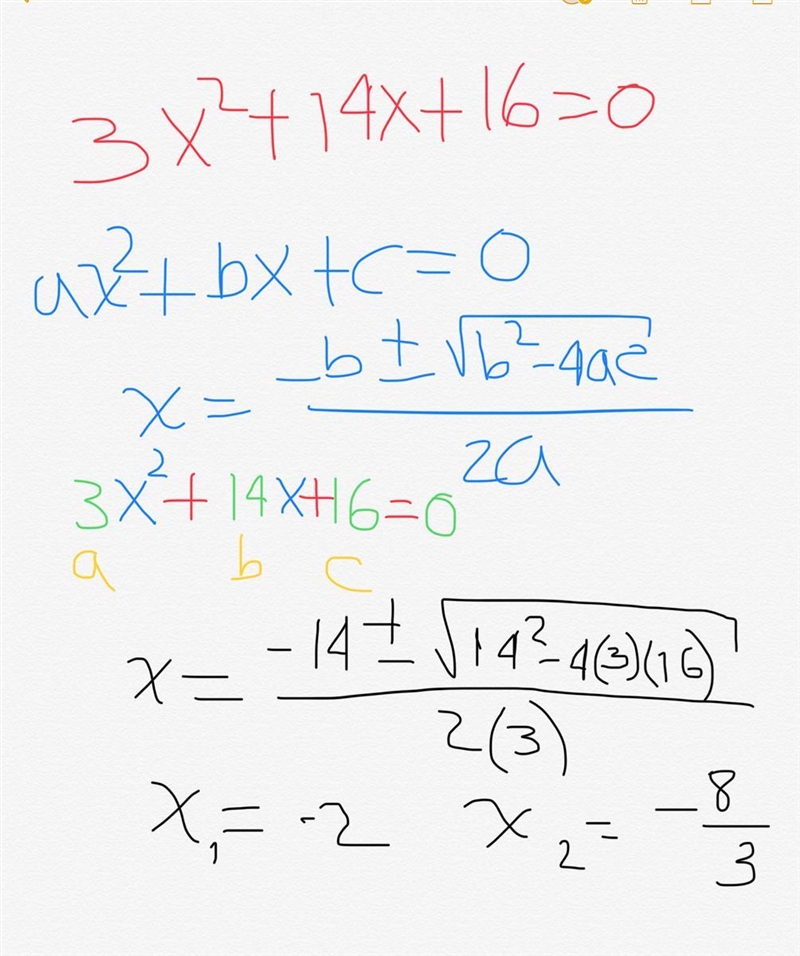 3x²+14x+16=0
ax²+bx+c=0
x = (-b ± √(b²-4ac)) / 2a
3x²+14x+16=0
a b c
x = (-14 ± √(14²-4(3)(16))) / 2(3)
x₁=-2 x₂=-8/3